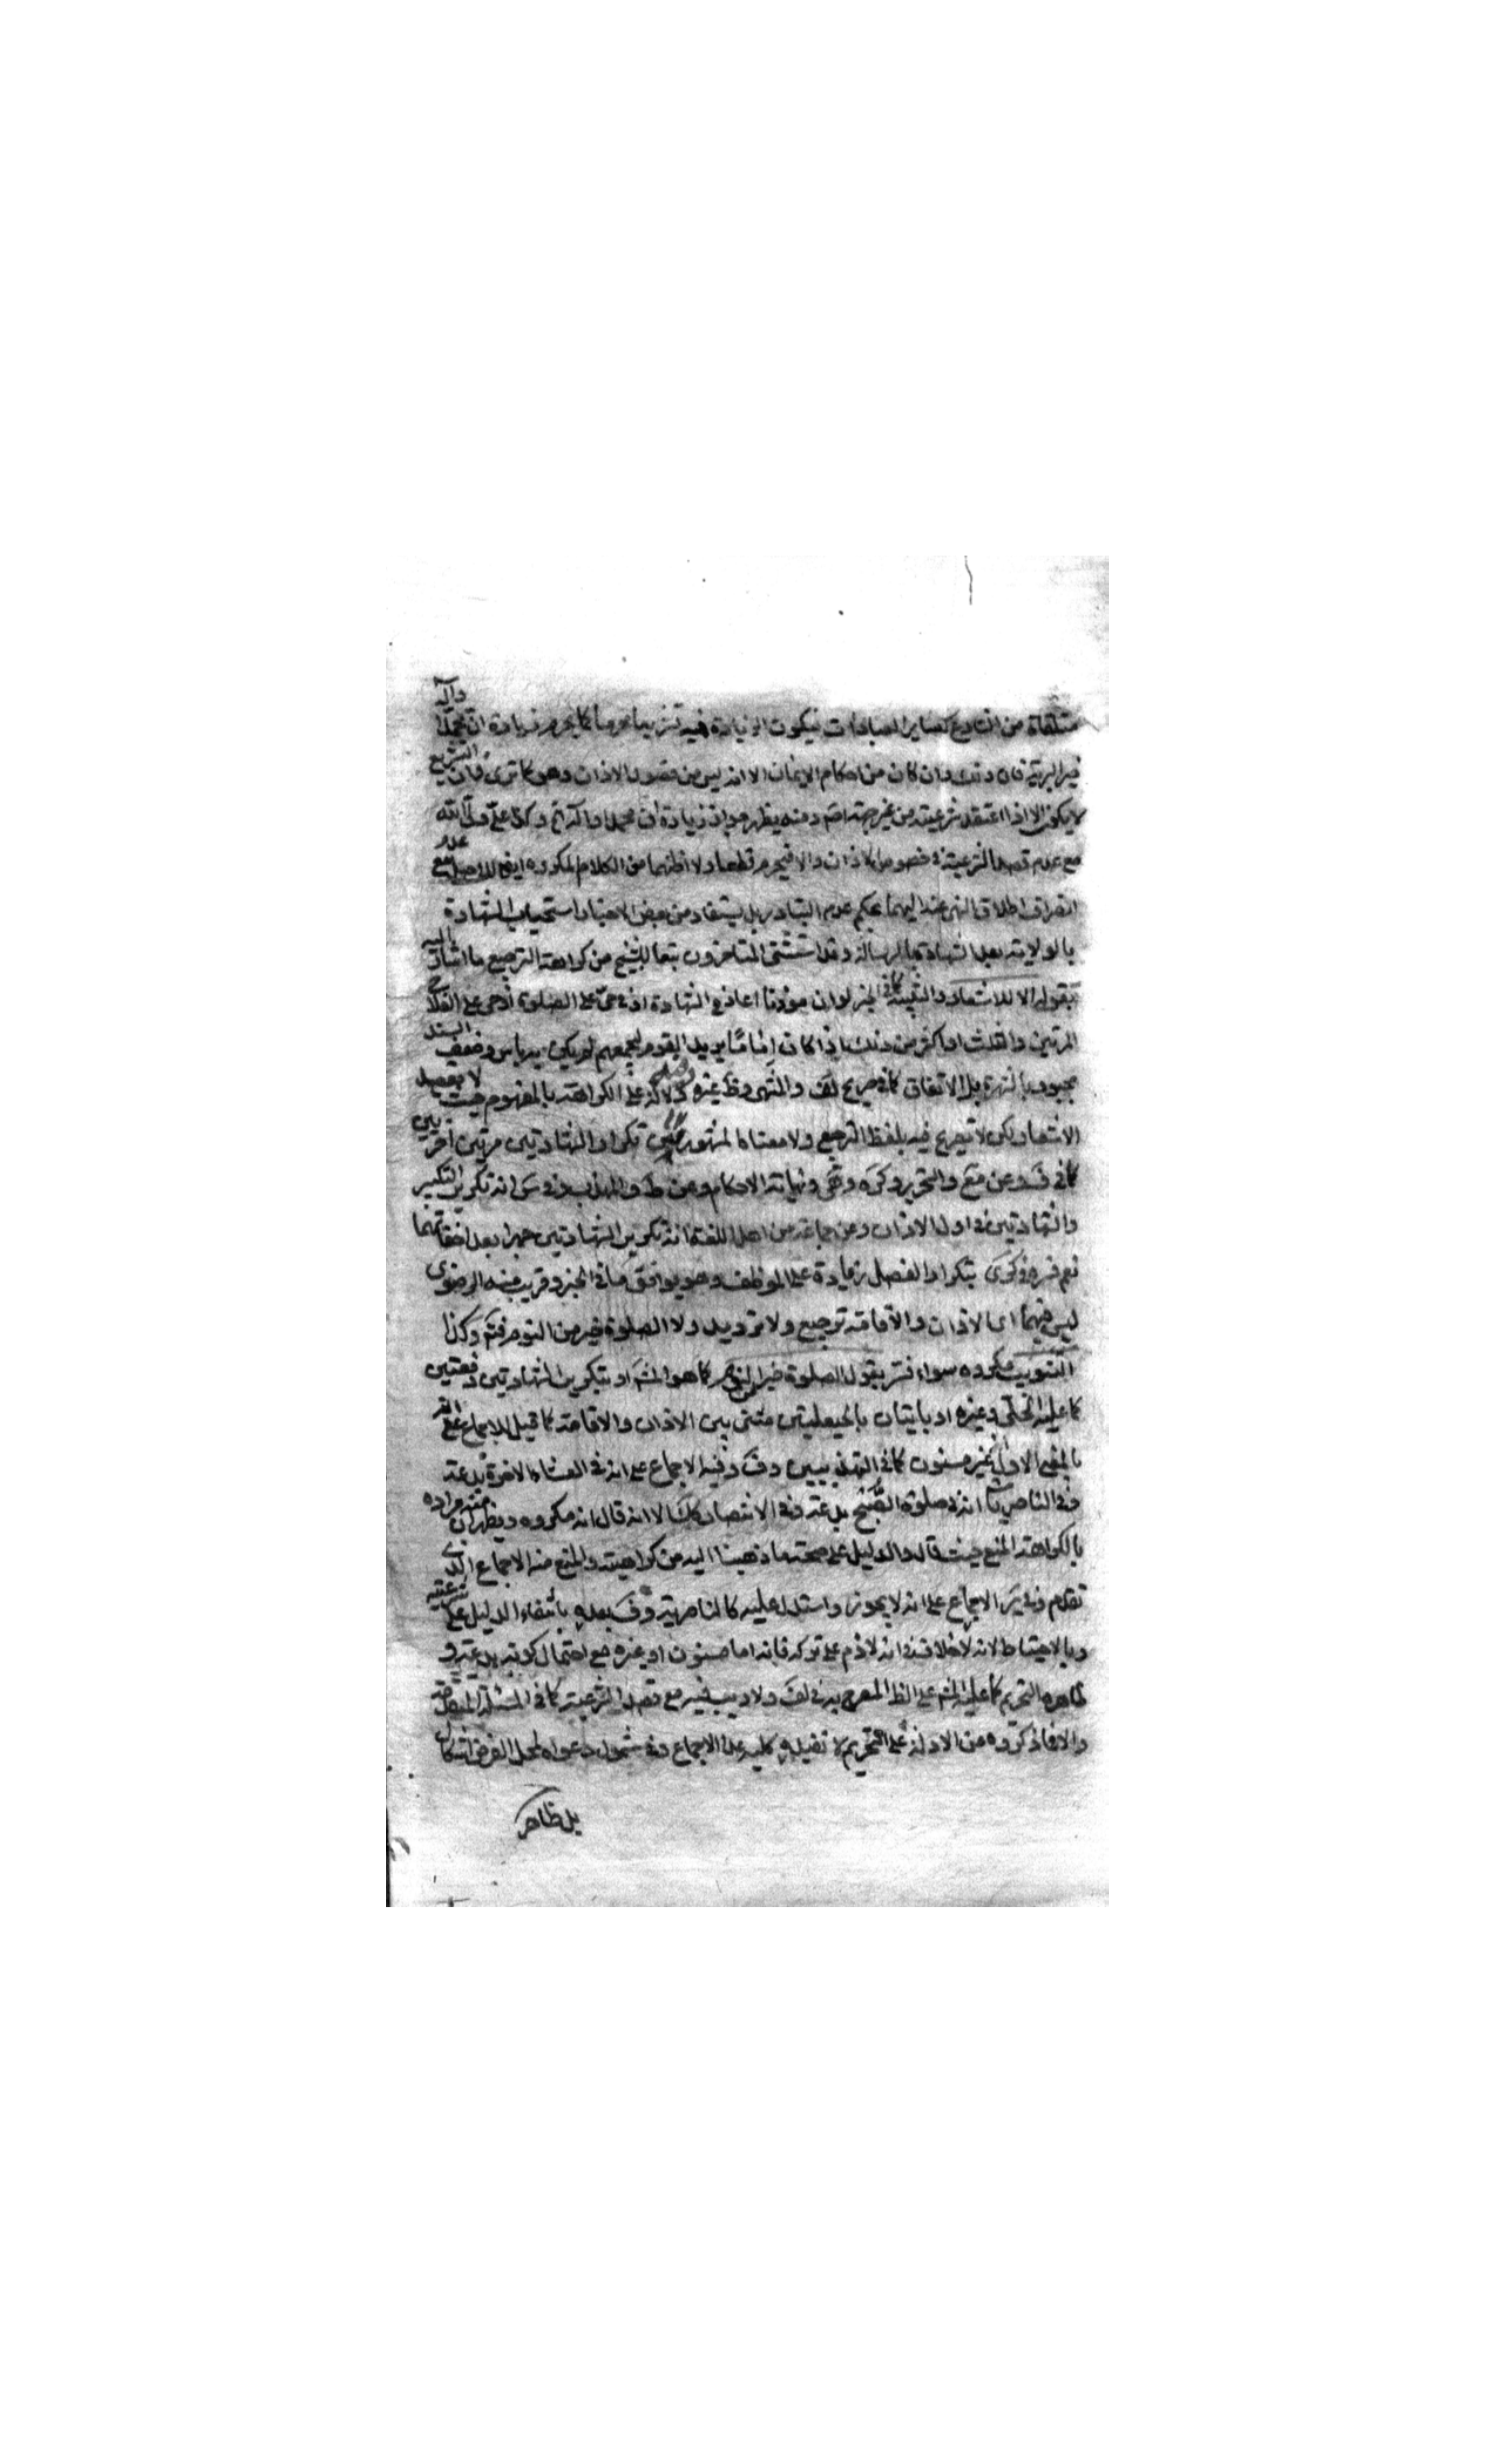 متلقاة من الشارع كساير العبادات فيكون الزيادة فيه تشريعا محرما كما يحرم زيادة ان محمدا وآله
خير البرية فان ذلك وان كان من احكام الايمان الا انه ليس من فصول الاذان وهو كما ترى فان التشريع
لا يكون الا اذا اعتقد شرعيته من غير جهة اصم ومنه يظهر جواز زيادة ان محمدا وآله الخ وكذا عليّ وليّ الله
مع عدم قصد الشرعية في خصوص الاذان والا فيحرم قطعا ولا اظنهما من الكلام المكروه ايض للاصل مع عدم
انصراف اطلاق النهى عنه اليهما بحكم عدم التبادر بل يستفاد من بعض الاخبار استحباب الشهادة
بالولاية بعد الشهادة بالرسالة وقد استثنى المتاخرون تبعا للشيخ من كراهة الترجيع ما اشار اليه
بقوله الا للاشعار والتنبيه كما في الخبر لو ان مؤذنا اعاد في الشهادة او في حى على الصلوة او حى على الفلاح
المرتين والثلث او اكثر من ذلك اذا كان اماما يريد القوم ليجمعهم لم يكن به باس وضعف السند
مجبور بالشهرة بل الاتفاق كما في صريح لف والمنتهى وظ غيره ودلالته على الكراهة بالمفهوم حيث لا يحصل
الاشعار لكن لا تصريح فيه بلفظ الترجيع ولا معناه المشهور تكرار الشهادتين مرتين اخريين
كما في وعن والتحرير وكره ونهاية الاحكام وعن ط والمهذب انه تكرير التكبير
والشهادتين في اول الاذان وعن جماعة من اهل اللغة انه تكرير الشهادتين جهرا بعد اخفاتهما
نعم فسره في كرى بتكرار الفصل زيادة على الموظف وهو يوافق ما في الخبر وقريب منه الرضوى
ليس فيهما اى الاذان والاقامة ترجيع ولا ترديد ولا الصلوة خير من النوم فتم وكذا
التثويب مكروه سواء فسر بقول الصلوة خير من النوم كما هو المشهـ او بتكرير الشهادتين دفعتين
كما عليه الحلى وغيره او باتيان بالحيعلتين مثنى بين الاذان والاقامة كما قيل للاجماع على انه
بالمعنى الاول غير مسنون كما في التهذيبين وف وفيه الاجماع على انه في العشاء الاخرة بدعة
وفي الناصريات انه في صلوة الصبح بدعة وفي الانتصار كك الا انه قال انه مكروه ويظهر ان مراده منه
بالكراهة المنع حيث قال والدليل على صحة ما ذهبنا اليه من كراهيته والمنع منه الاجماع الذى
تقدم وفي ئر الاجماع على انه لا يجوز واستدل عليه كالناصرية وف بعده بانتفاء الدليل على شرعيته
وبالاحتياط لانه لا خلاف في انه لا ذم على تركه فانه اما مسنون او غيره مع احتمال كونه بدعة و
ظاهره التحريم كما عليه المشهـ على الظ المصرح به في لف ولا ريب فيه مع قصد الشرعية كما في المسئلة المتقدمة
والا فما ذكروه من الادلة على التحريم لا تفيده كلية عدا الاجماع وفي شمول دعواه لمحل الفرض اشكال
بل ظاهر